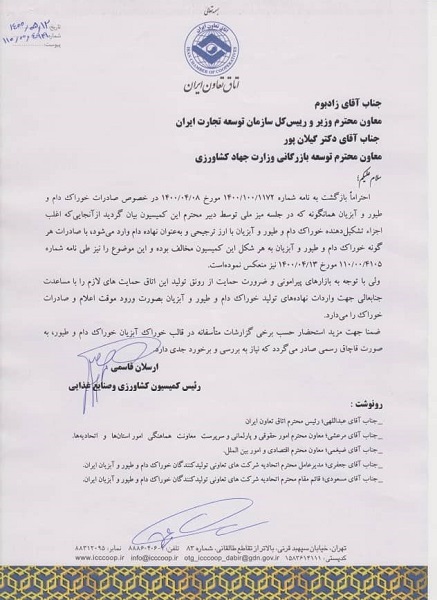 بسمه‌تعالی
تاریخ
شماره
پیوست
اتاق تعاون ایران
IRAN CHAMBER OF COOPERATIVES
اتاق تعاون ایران
جناب آقای زادبوم
معاون محترم وزیر و رییس‌کل سازمان توسعه تجارت ایران
جناب آقای دکتر گیلان پور
معاون محترم توسعه بازرگانی وزارت جهاد کشاورزی
سلام علیکم؛
احتراماً بازگشت به نامه شماره ۱۴۰۰/۱۰۰/۱۱۷۲ مورخ ۱۴۰۰/۰۴/۰۸ در خصوص صادرات خوراک دام و
طیور و آبزیان همانگونه که در جلسه میز ملی توسط دبیر محترم این کمیسیون بیان گردید ازآنجایی‌که اغلب
اجزاء تشکیل‌دهنده خوراک دام و طیور و آبزیان با ارز ترجیحی و به‌عنوان نهاده دام وارد می‌شود، با صادرات هر
گونه خوراک دام و طیور و آبزیان به هر شکل این کمیسیون مخالف بوده و این موضوع را نیز طی نامه شماره
۱۱۰/۰۰/۴۱۰۵ مورخ ۱۴۰۰/۰۴/۱۳ نیز منعکس نموده‌است.
ولی با توجه به بازارهای پیرامونی و ضرورت حمایت از رونق تولید این اتاق حمایت های لازم را با مساعدت
جنابعالی جهت واردات نهاده‌های تولید خوراک دام و طیور و آبزیان بصورت ورود موقت اعلام و صادرات
خوراک را می‌دارد.
ضمنا جهت مزید استحضار حسب برخی گزارشات متأسفانه در قالب خوراک آبزیان خوراک دام و طیور، به
صورت قاچاق رسمی صادر می‌گردد که نیاز به بررسی و برخورد جدی دارد.
ارسلان قاسمی
رئیس کمیسیون کشاورزی وصنایع غذایی
رونوشت :
_جناب آقای عبداللهی؛ رئیس محترم اتاق تعاون ایران
_جناب آقای مرعشی؛ معاون محترم امور حقوقی و پارلمانی و سرپرست معاونت هماهنگی امور استان‌ها و اتحادیه‌ها.
_جناب آقای ضیغمی؛ معاون محترم اقتصادی و امور بین الملل.
_جناب آقای جعفری؛ مدیرعامل محترم اتحادیه شرکت های تعاونی تولیدکنندگان خوراک دام و طیور و آبزیان ایران.
_جناب آقای مسعودی؛ قائم مقام محترم اتحادیه شرکت های تعاونی تولیدکنندگان خوراک دام و طیور و آبزیان ایران.
تهران، خیابان سپهبد قرنی، بالاتر از تقاطع طالقانی، شماره ۸۳ تلفن: ۶۰-۸۸۸۶۰۴ نمابر: ۸۸۳۱۲۰۹۵
کدپستی: ۱۵۸۳۶۱۳۱۱۱ otg_icccoop_dabir@gdn.gov.ir info@icccoop.ir www.icccoop.ir